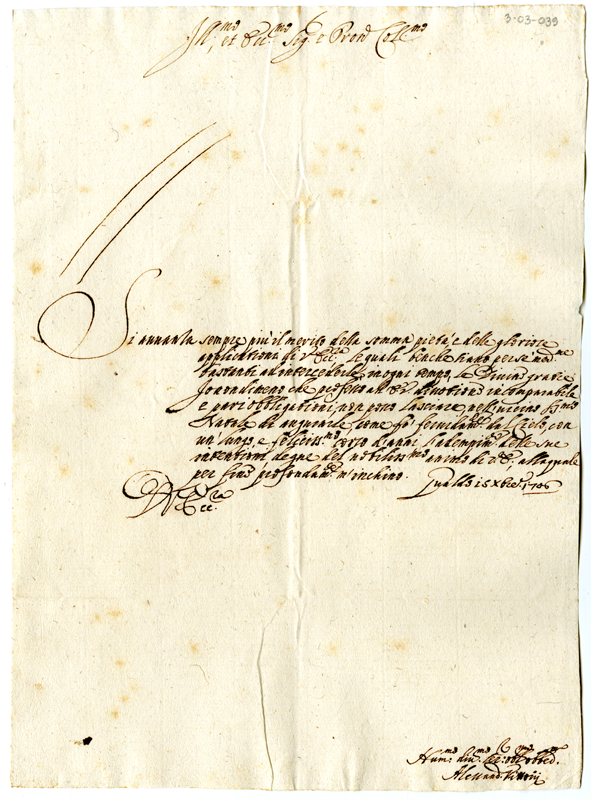 3-03-039
Ill.mo et Ecc.mo Sig.r e Pron Coll.mo
Si avvanza sempre più il merito della somma pietà, e delle gloriose
applicationi di V. Ecc.za le quali benche siano per se
bastanti ad intercederle in ogni tempo le Divine gratie;
Io nondimeno che professo all' E.V. divotione incomparabile
e pari obbligationi, non posso lasciare nell' vicino S.mo
Natale di augurarle, come fò fecondam.te dal Cielo, con
un lungo, e feliciss.mo corso d'anni l'adempim.to delle sue
intentioni degne del nobiliss.mo animo di V.E., alla quale
per fine profondam.te m'inchino. Gualdo 15 Xbre 1706
D V. Ecc.za
Hum.mo div.mo et obl.mo
Alessand.